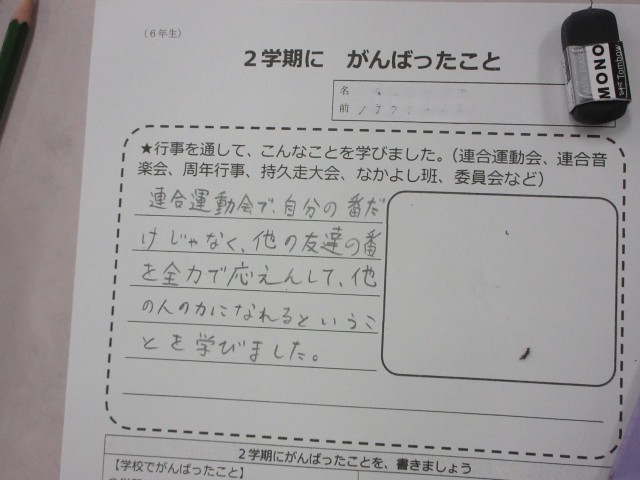 （６年生）
２学期に　がんばったこと
名
前
★行事を通して、こんなことを学びました。（連合運動会、連合音
楽会、周年行事、持久走大会、なかよし班、委員会など）
連合運動会で、自分の番だ
けじゃなく、他の友達の番
を全力で応えんして、他
の人の力になれるというこ
とを学びました。
２学期にがんばったことを、書きましょう
【学校でがんばったこと】
MONO
Tombow